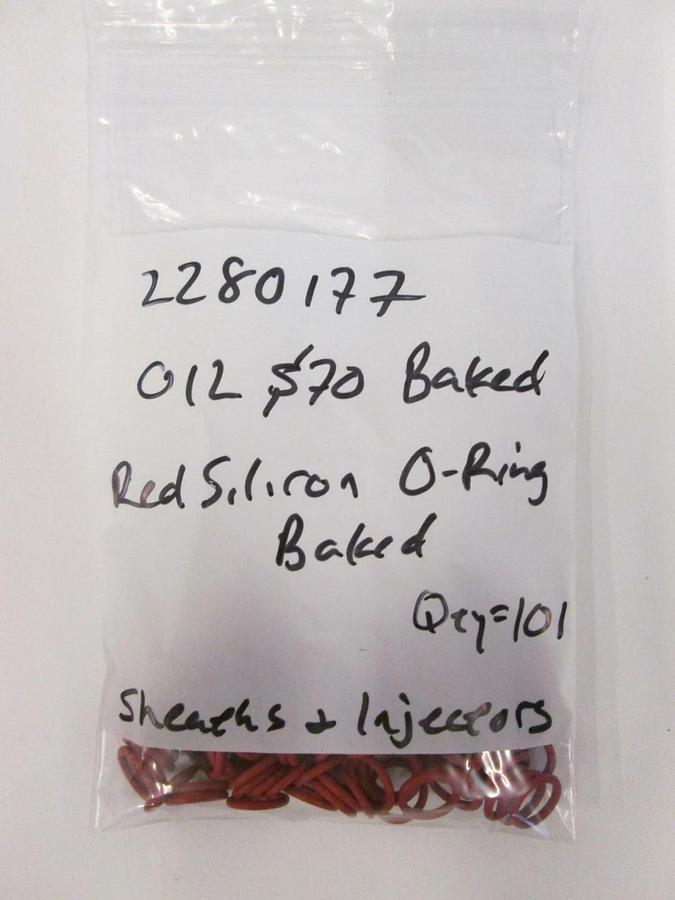 2280177
012 S70 Baked
Red Silicon O-Ring
Baked
Qty=101
Sheaths + Injectors